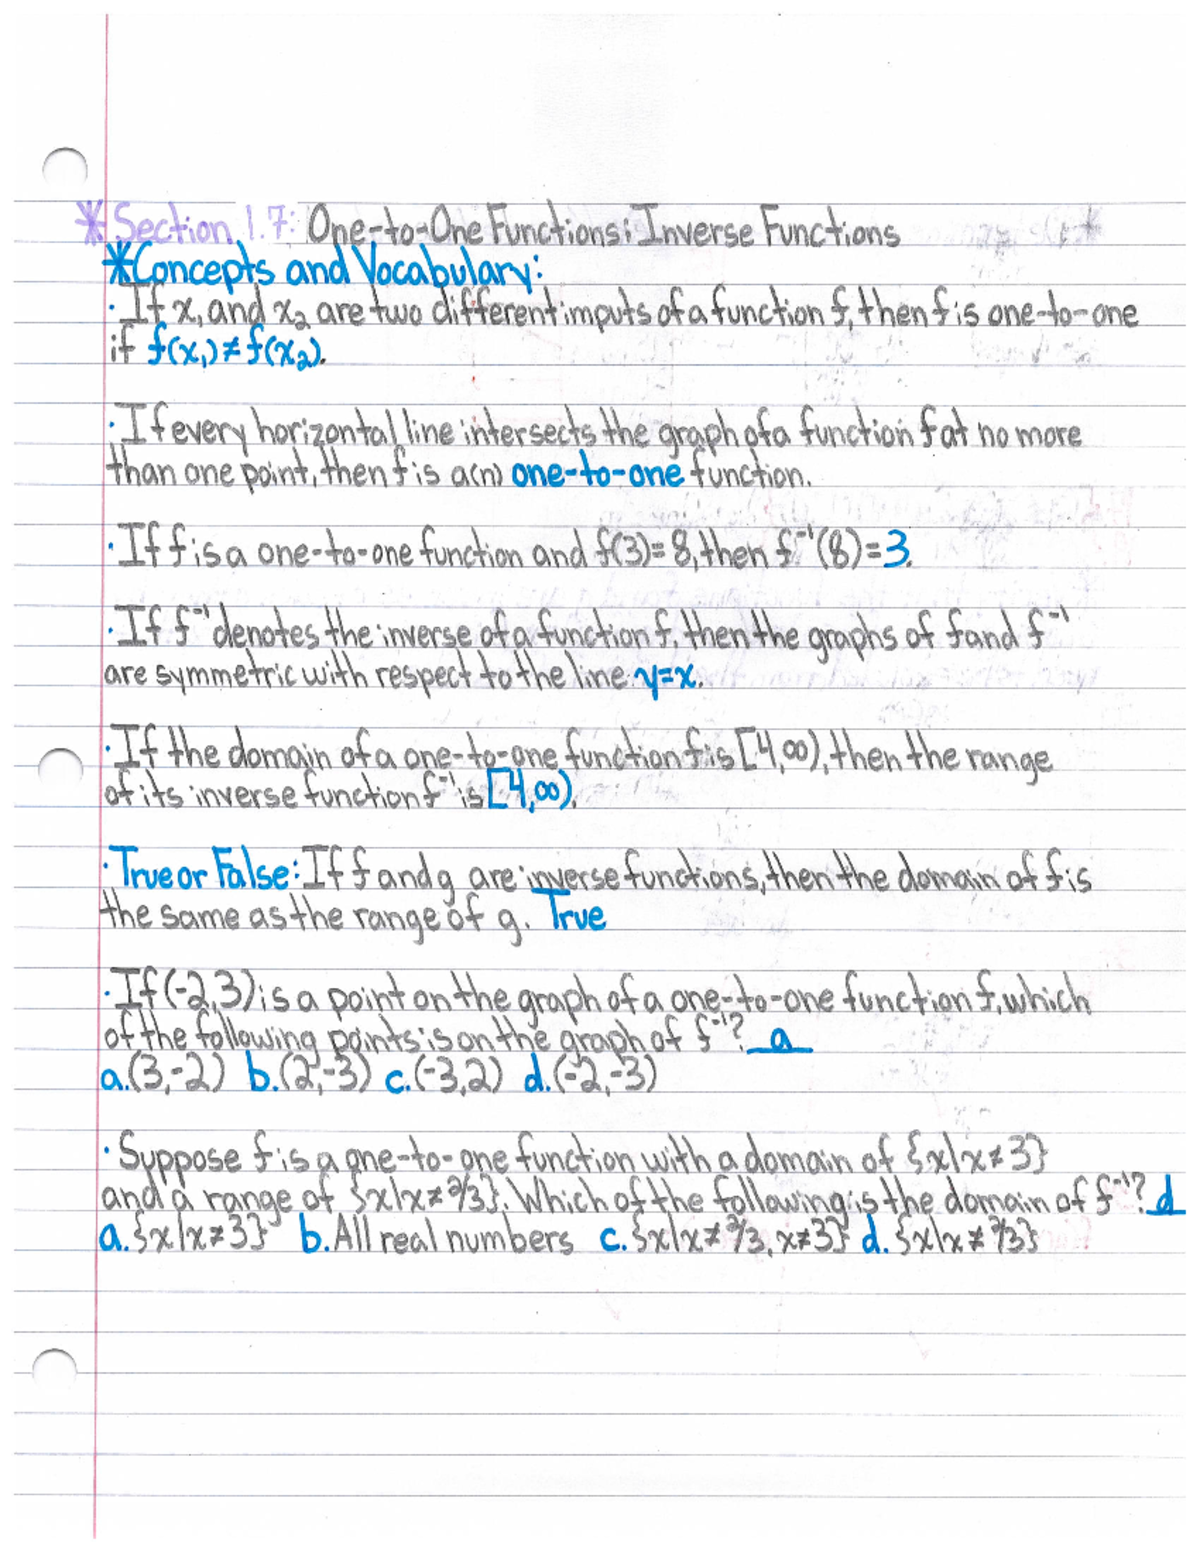 *Section 1.7: One-to-One Functions; Inverse Functions
*Concepts and Vocabulary:
· If x₁ and x₂ are two different imputs of a function f, then f is one-to-one
if f(x₁) ≠ f(x₂).
· If every horizontal line intersects the graph of a function f at no more
than one point, then f is a(n) one-to-one function.
· If f is a one-to-one function and f(3)=8, then f⁻¹(8)=3.
· If f⁻¹ denotes the inverse of a function f, then the graphs of f and f⁻¹
are symmetric with respect to the line y=x.
· If the domain of a one-to-one function f is [4,∞), then the range
of its inverse function f⁻¹ is [4,∞).
· True or False: If f and g are inverse functions, then the domain of f is
the same as the range of g. True
· If (-2,3) is a point on the graph of a one-to-one function f, which
of the following points is on the graph of f⁻¹? a
a.(3,-2) b.(2,-3) c.(-3,2) d.(-2,-3)
· Suppose f is a one-to-one function with a domain of {x|x≠3}
and a range of {x|x≠2/3}. Which of the following is the domain of f⁻¹? d
a.{x|x≠3} b.All real numbers c.{x|x≠2/3, x≠3} d.{x|x≠2/3}